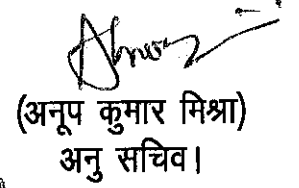 (अनूप कुमार मिश्रा)
अनु सचिव।